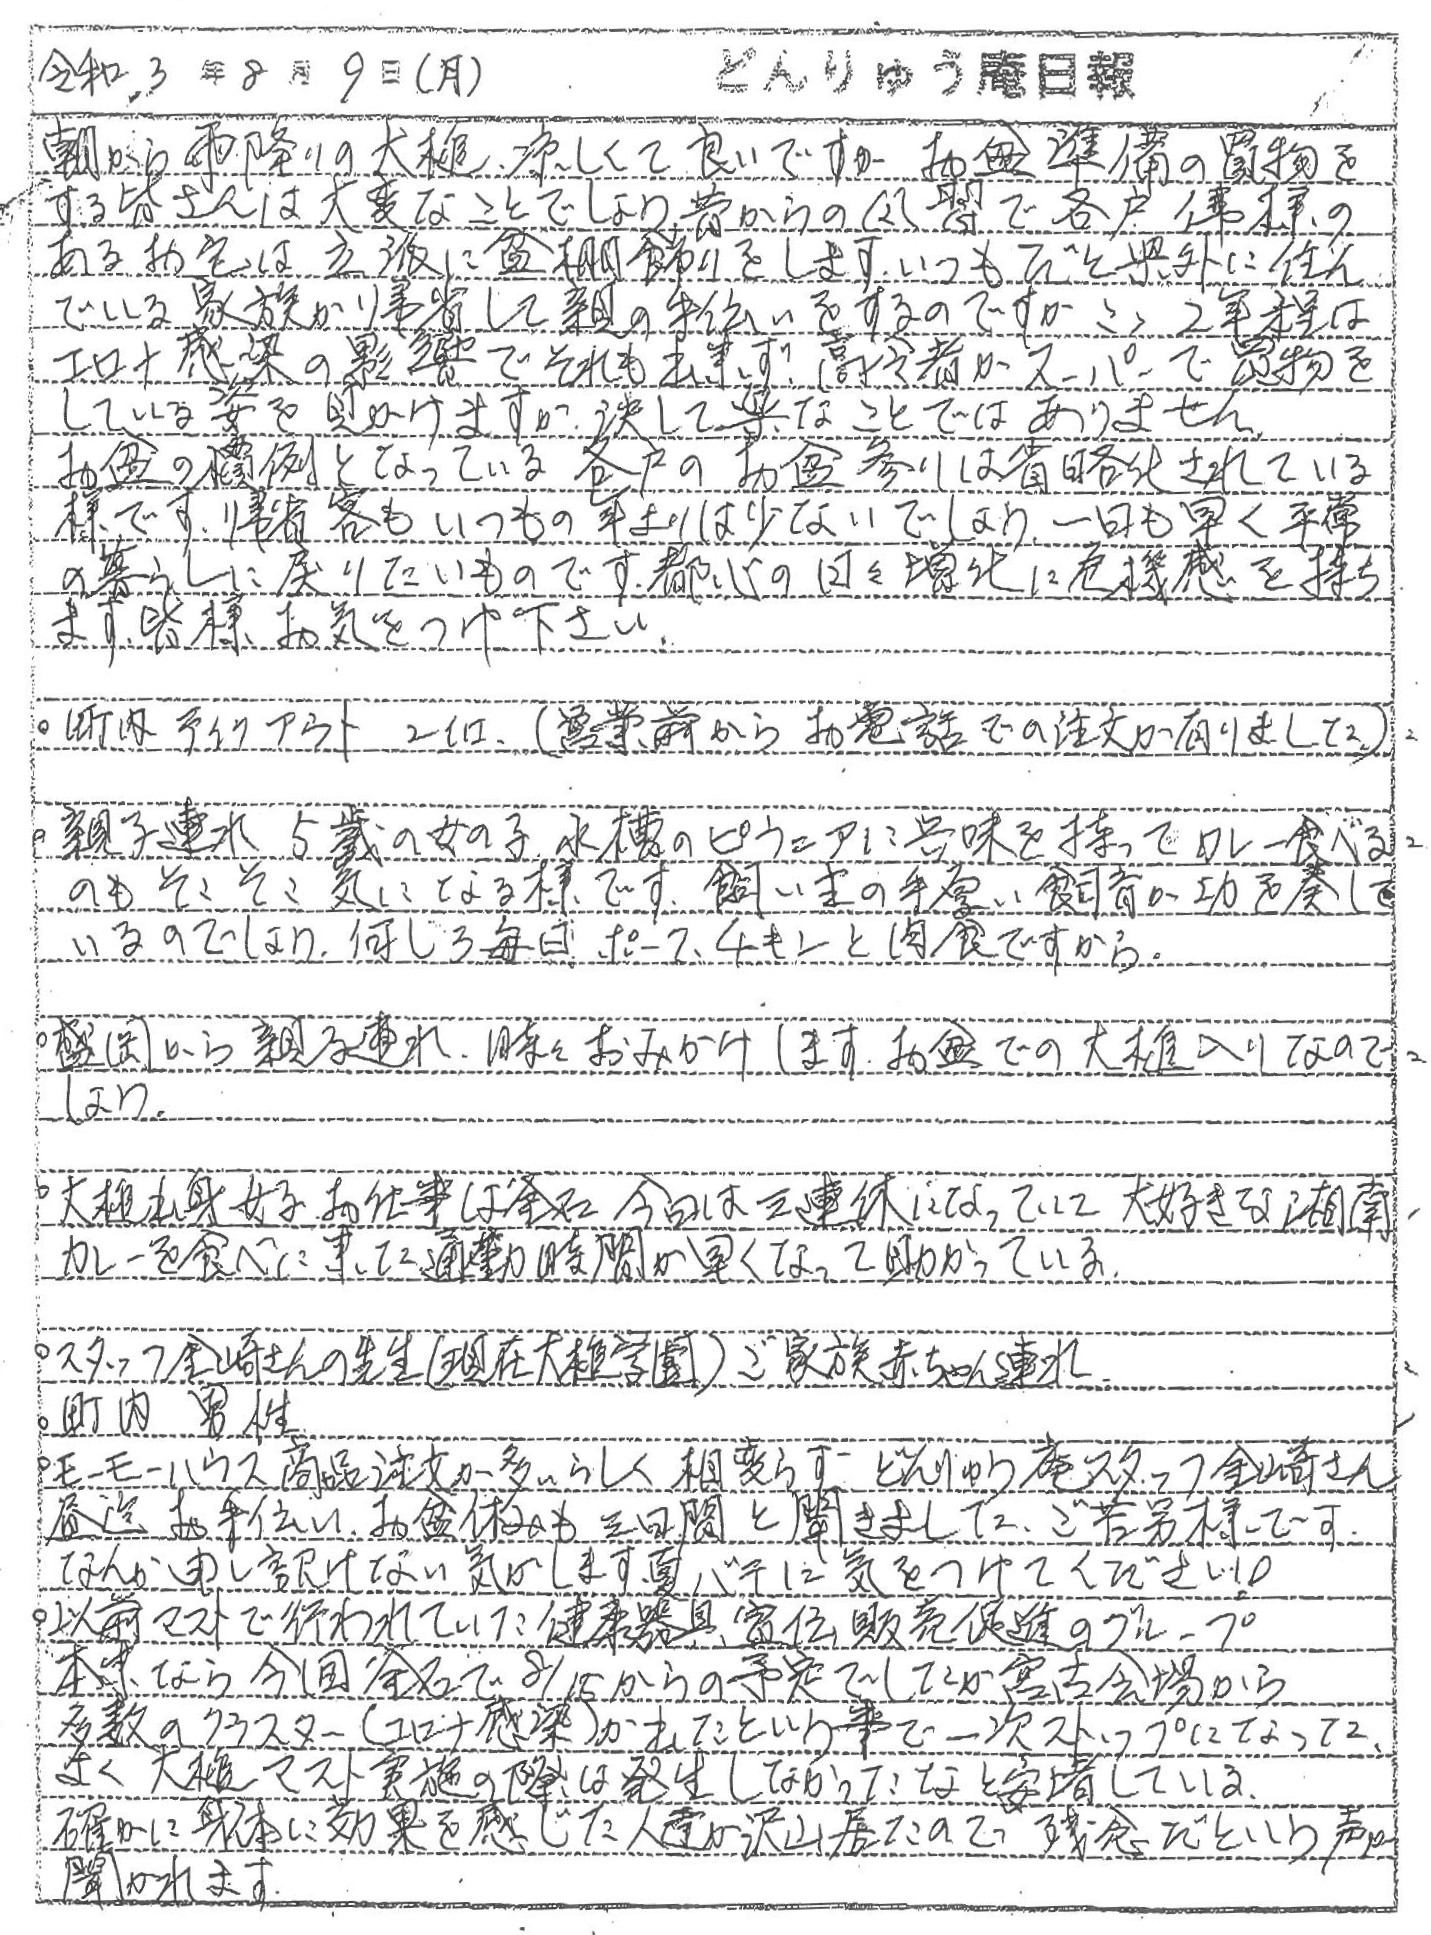 令和 3 年 8 月 9 日(月) どんりゅう庵日報
朝から雨降りの大槌、涼しくて良いですが お盆準備の買物を
する皆さんは大変なことでしょう。昔からの風習で各戸仏様の
あるお宅は立派に盆棚飾りをします。いつもだと県外に住ん
でいる家族が帰省して親の手伝いをするのですが ここ2年程は
コロナ感染の影響でそれも出来ず、高令者がスーパーで買物を
している姿を見かけますが、決して楽なことではありません。
お盆の慣例となっている各戸のお盆参りは省略化されている
様です。帰省客もいつもの年よりは少ないでしょう。一日も早く平常
の暮らしに戻りたいものです。都心の日々増化に危機感を持ち
ます。皆様、お気をつけ下さい。
○町内 テイクアウト 2名、(営業前からお電話での注文が有りました。) 2
○親子連れ 5歳の女の子 水槽のピラニアに興味を持ってカレー食べる 2
のもそこそこ気になる様です。飼い主の手厚い飼育が功を奏して
いるのでしょう。何しろ毎日 ポーク、チキンと肉食ですから。
○盛岡から親子連れ、時々おみかけします。お盆での大槌入りなので 2
しょう。
○大槌出身女子 お仕事は釜石 今日は三連休になっていて 大好きな湘南
カレーを食べに来た 通勤時間が早くなって助かっている。
○スタッフ金崎さんの先生(現在大槌学園)ご家族赤ちゃん連れ 2
○町内 男性
○モーモーハウス商品注文が多いらしく 相変らず どんりゅう庵スタッフ金崎さん
昼迄お手伝い、お盆休みも三日間と聞きました、ご苦労様です。
なんか申し訳けない気がします。夏バテに気をつけてください!
○以前マストで行われていた健康器具、宣伝販売促進のグループ
本来なら今回釜石で8/15からの予定でしたが宮古会場から
多数のクラスター(コロナ感染)が出たという事で一次ストップになった、
よく大槌マスト実施の際は発生しなかったなと安堵している。
確かに身体に効果を感じた人達が沢山居たので 残念だという声が
聞かれます。